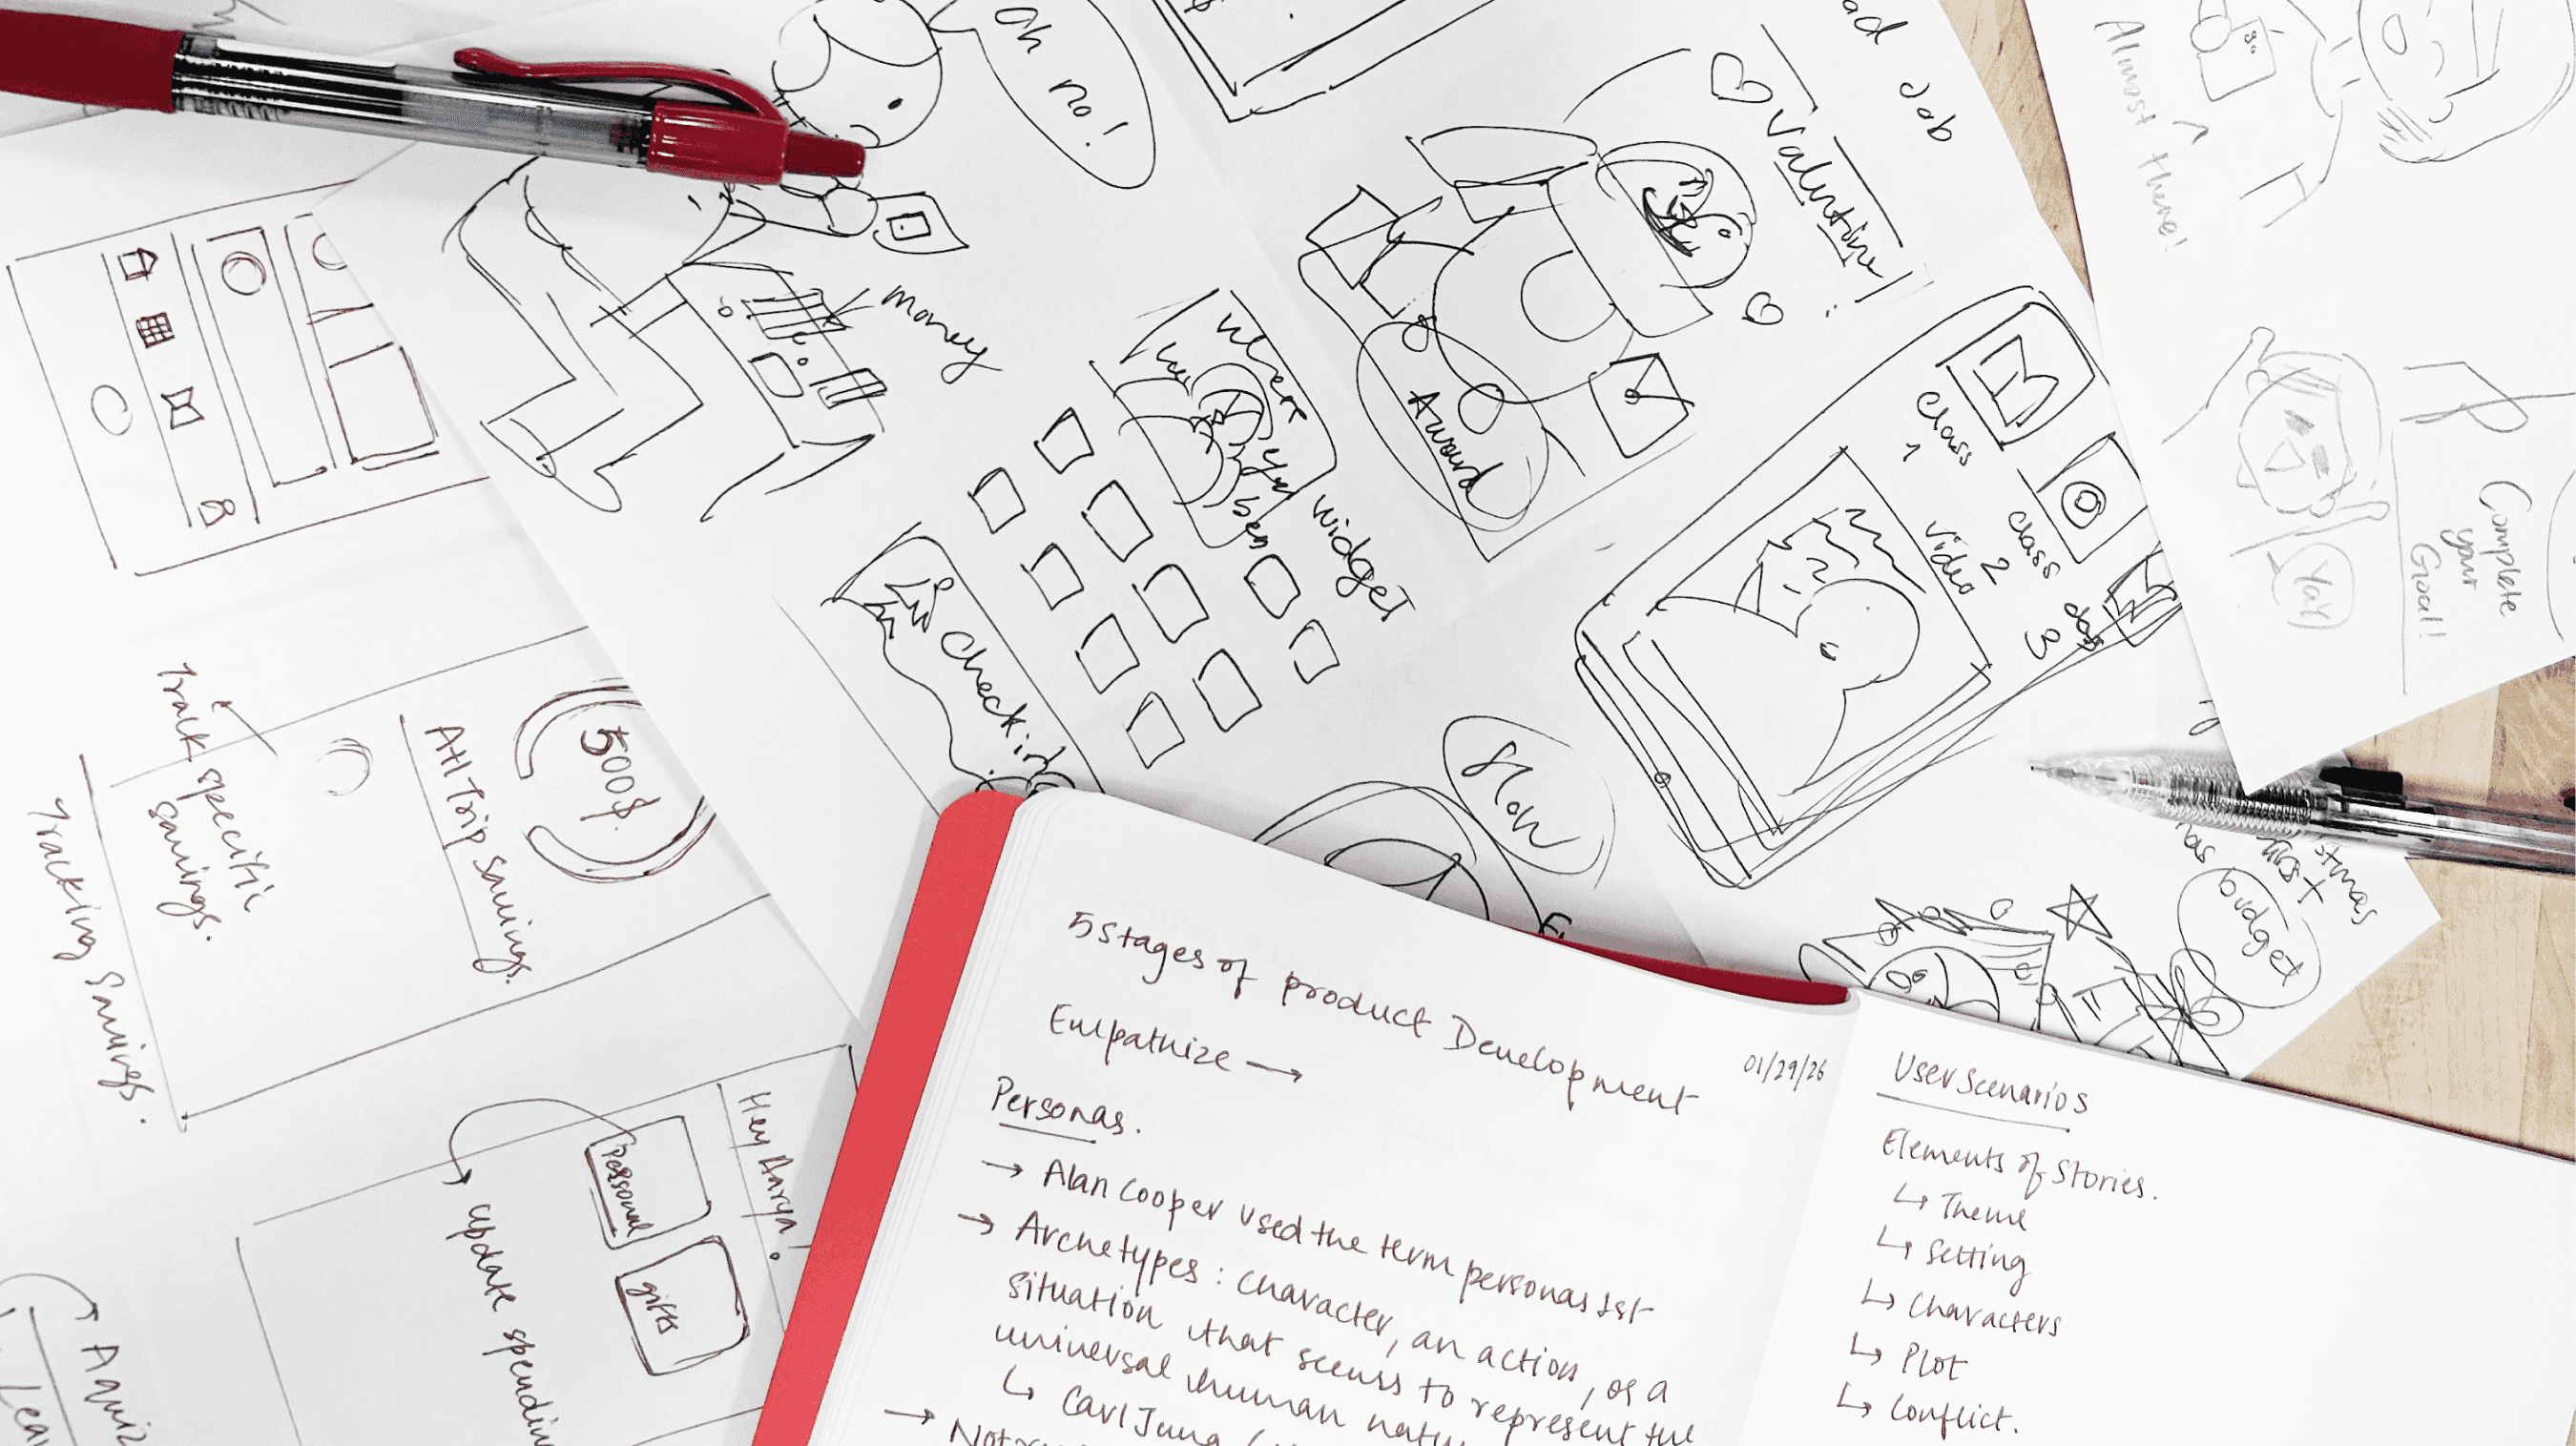 Oh
no!
money
ad Job
Valentine!
Award
where
you
been
widget
Check in
class
1
class
2
video
class
3
slow
Almost there!
Complete
your
Goal!
YaY
budget
5000$.
Atl Trip Savings.
Track specific
savings.
Tracking Savings.
Hey Aarya!
Personal
gifts
update spending
5 stages of product Development
Empathize →
01/29/26
Personas.
→ Alan Cooper used the term personas 1st
→ Archetypes : Character, an action, or a
situation that seems to represent the
universal human
↳ Carl Jung
User Scenarios
Elements of Stories.
↳ Theme
↳ Setting
↳ Characters
↳ Plot
↳ Conflict.